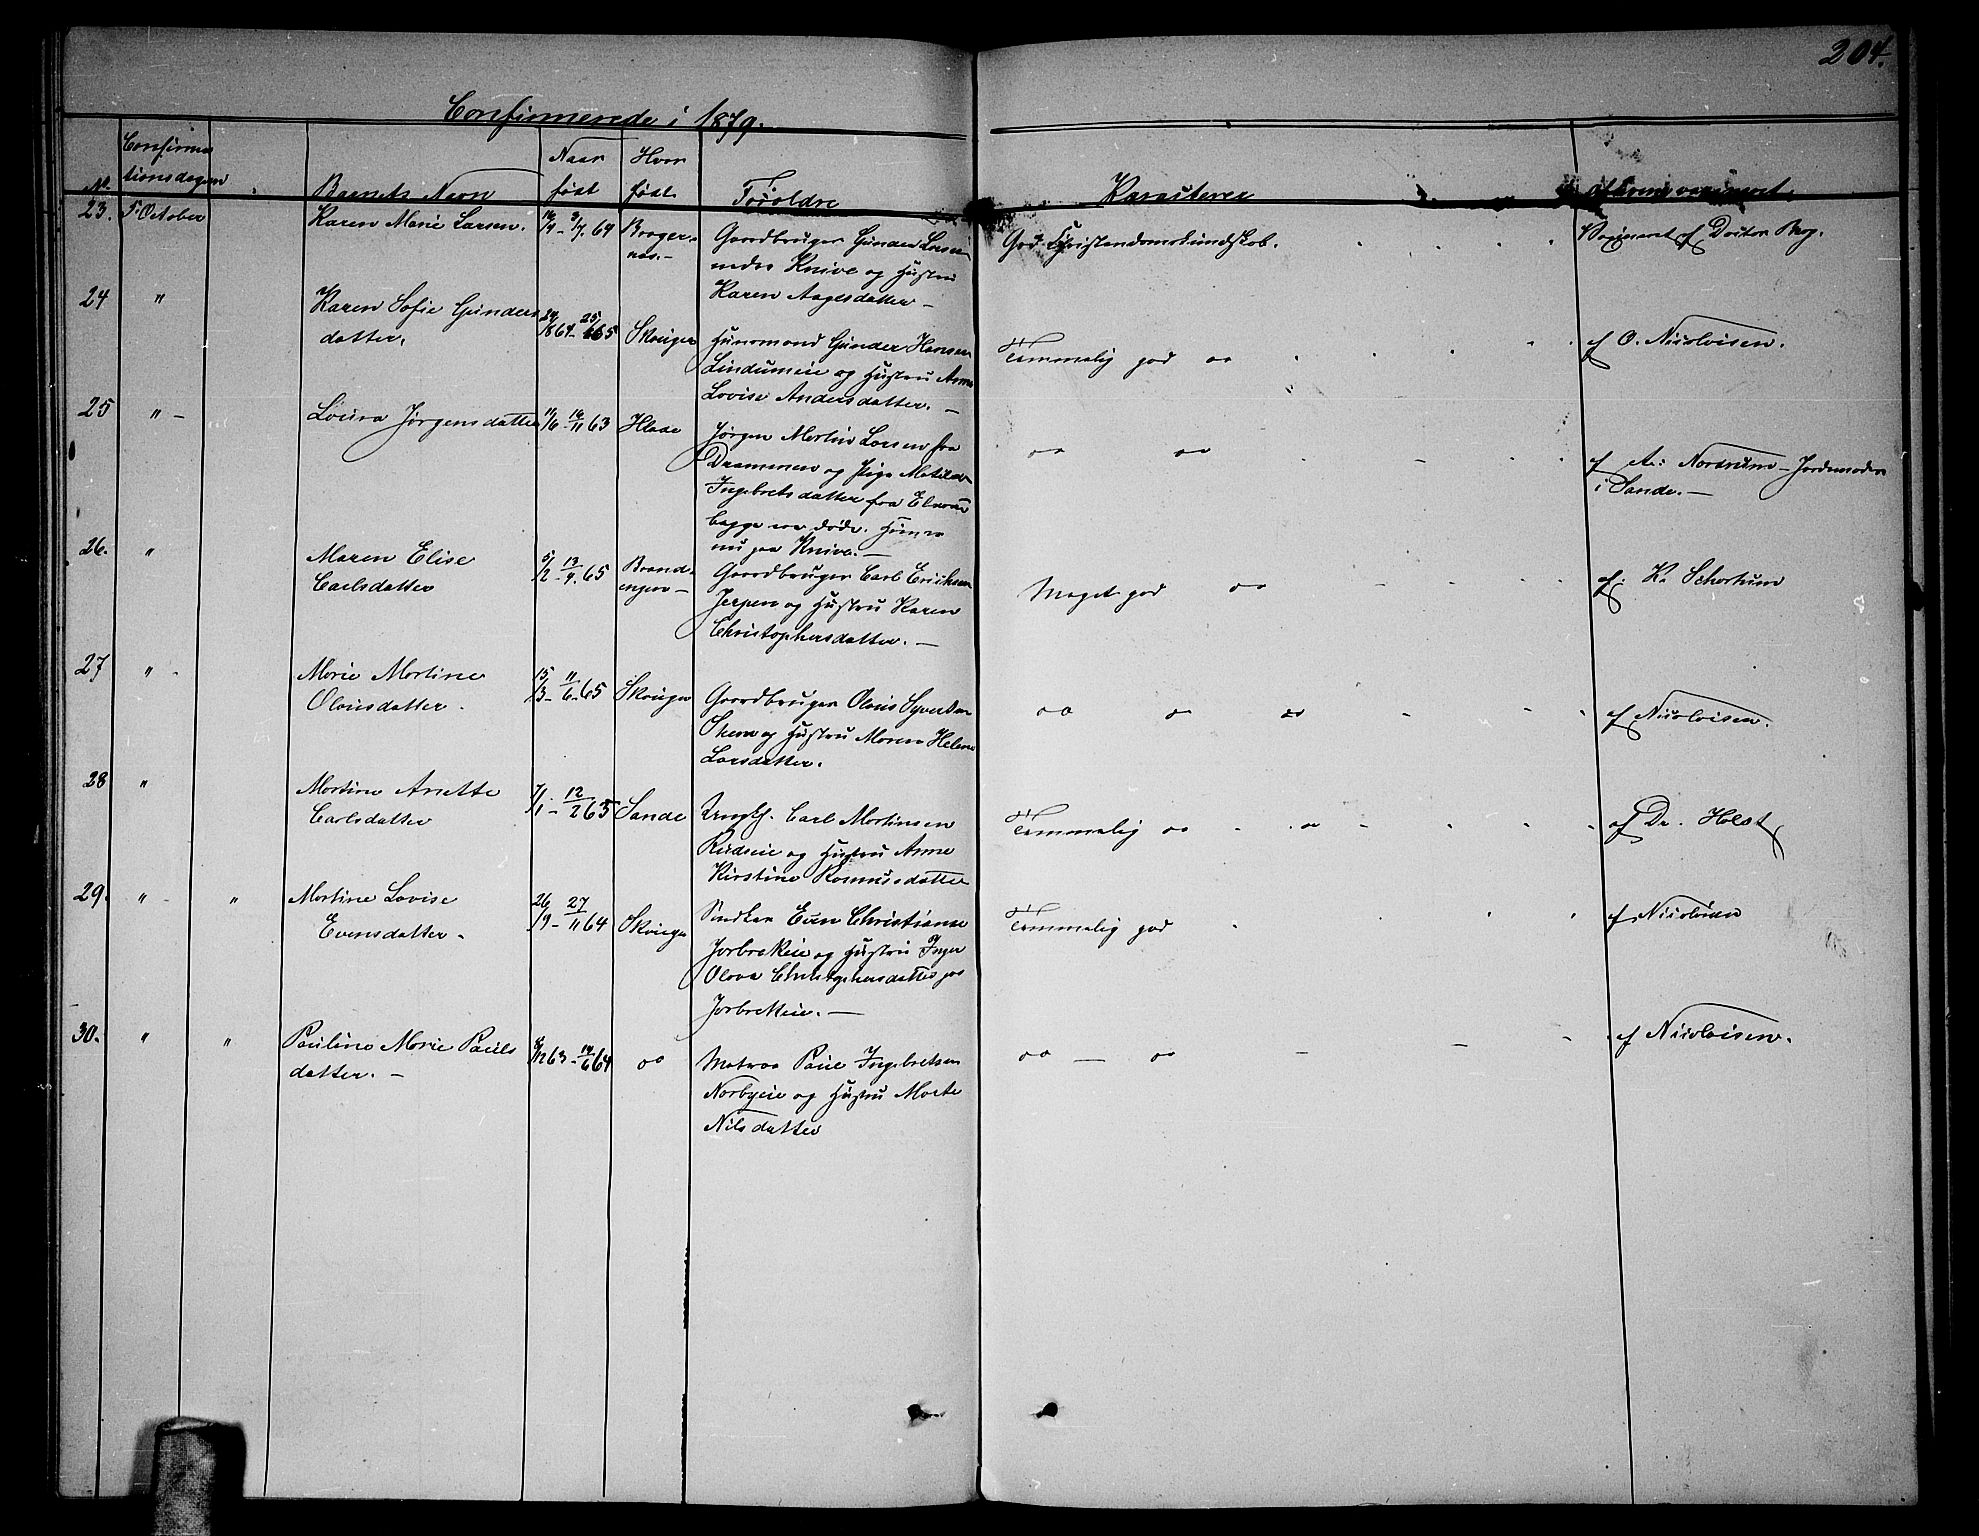 204.
Confirmerede i 1879.
No.
Confirma
tionsdagen
Barnets Navn
Naar
født
Hvor
født
Forældre
Karacterer
af hvem vaccineret.
23. 5. October Karen Marie Larsen. 64 Brager-
næs.-
Gaardbruger Gunder Larsen
nedre Knive og Hustru
Karen Aagesdatter -
God Christendomskundskab. Vaccineret af Doctor Berg.
24 " Karen Sofie Gunders
datter. 64 - 65 Skouger
Huusmand Gunder Hansen
Lindumeie og Hustru Anne
Lovise Andersdatter. -
Temmelig god af O. Nicolaisen.
25 " - Laura Jørgensdatter 11/6 - 63
Jørgen Martin Larsen fra
Drammen og Pige Matilde
Ingebretsdatter fra
begge ere døde.
nu paa Knive. -
af Nordrum - Jordemoder
i Sande. -
26. " Maren Elise
Carlsdatter 5/2 - 65 Brand-
engen -
Gaardbruger Carl Eriksen
Jerpen og Hustru Karen
Christophersdatter. -
Meget god af K.
27 " - Marie Martine
Olausdatter. 15/3 - 11/6 65 Skouger
Gaardbruger Olaus Syvertsen
og Hustru Maren Helene
Larsdatter.
af Nicolaisen.
28 " Martine Anette
Carlsdatter 7/1 - 12/2 65 Sande
Carl Martinsen
og Hustru Anne
Kirstine Rasmusdatter
Temmelig af Dr. Holst
29. " - " Martine Lovise
Evensdatter - 26/9 - 27/11 64 Skouger
Snedker Even Christiansen
Jarbrekeie og Hustru Inger
Olava Christophersdatter paa
Jarbrekeie. -
Temmelig god af Nicolaisen
30. " " Pauline Marie Pauls
datter. - 63 - 64
Matros Paul Ingebretsen
Norbyeie og Hustru Marte
Nilsdatter
af Nicolaisen.